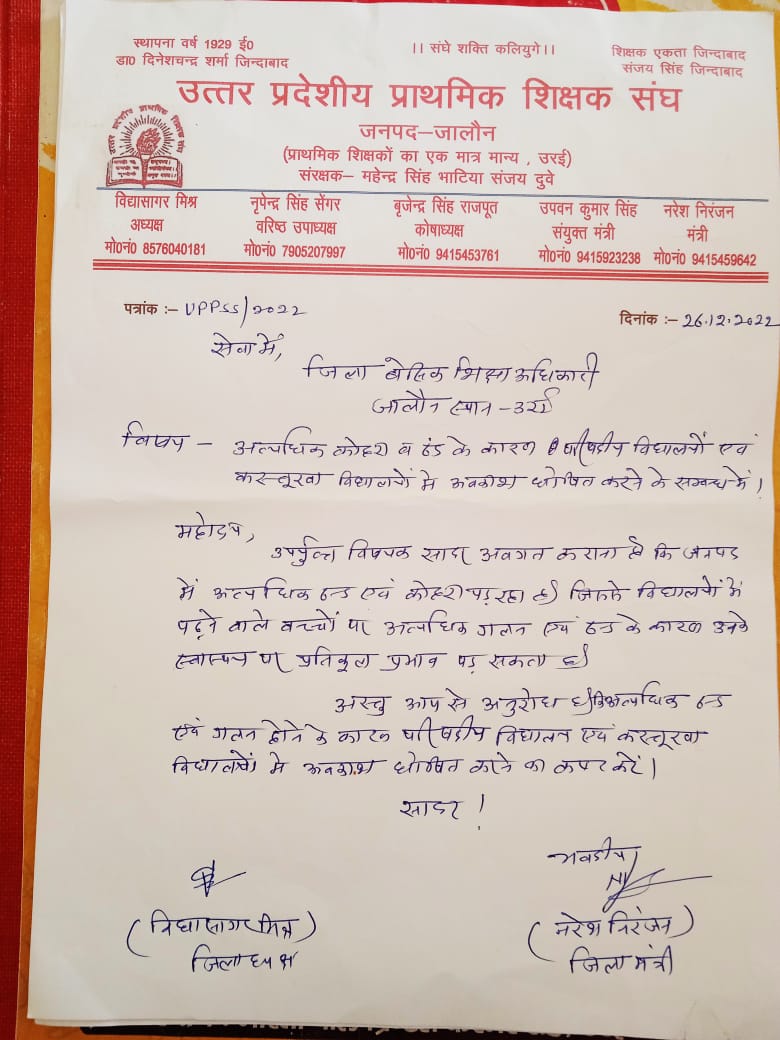 स्थापना वर्ष 1929 ई0
।। संघे शक्ति कलियुगे।।
शिक्षक एकता जिन्दाबाद
डा0 दिनेशचन्द्र शर्मा जिन्दाबाद
संजय सिंह जिन्दाबाद
उत्तर प्रदेशीय प्राथमिक शिक्षक संघ
जनपद–जालौन
(प्राथमिक शिक्षकों का एक मात्र मान्य , उरई)
संरक्षक– महेन्द्र सिंह भाटिया संजय दुवे
विद्यासागर मिश्र नृपेन्द्र सिंह सेंगर बृजेन्द्र सिंह राजपूत उपवन कुमार सिंह नरेश निरंजन
अध्यक्ष वरिष्ठ उपाध्यक्ष कोषाध्यक्ष संयुक्त मंत्री मंत्री
मो0नं0 8576040181 मो0नं0 7905207997 मो0नं0 9415453761 मो0नं0 9415923238 मो0नं0 9415459642
पत्रांक :– UPPSS/2022 दिनांक :– 26.12.2022
सेवा में,
जिला बेसिक शिक्षा अधिकारी
जालौन स्थान - उरई
विषय - अत्यधिक कोहरा व ठंड के कारण परिषदीय विद्यालयों एवं
कस्तूरबा विद्यालयों में अवकाश घोषित करने के सम्बन्ध में।
महोदय,
उपर्युक्त विषयक सादर अवगत कराना है कि जनपद
में अत्यधिक ठन्ड एवं कोहरा पड़ रहा है। जिससे विद्यालयों में
पढ़ने वाले बच्चों पर अत्यधिक गलन एवं ठन्ड के कारण उनके
स्वास्थ्य पर प्रतिकूल प्रभाव पड़ सकता है।
अस्तु आप से अनुरोध है कि अत्यधिक ठन्ड
एवं गलन होने के कारण परिषदीय विद्यालय एवं कस्तूरबा
विद्यालयों में अवकाश घोषित करने का कष्ट करें।
सादर !
भवदीय
(विद्यासागर मिश्र) (नरेश निरंजन)
जिलाध्यक्ष जिला मंत्री